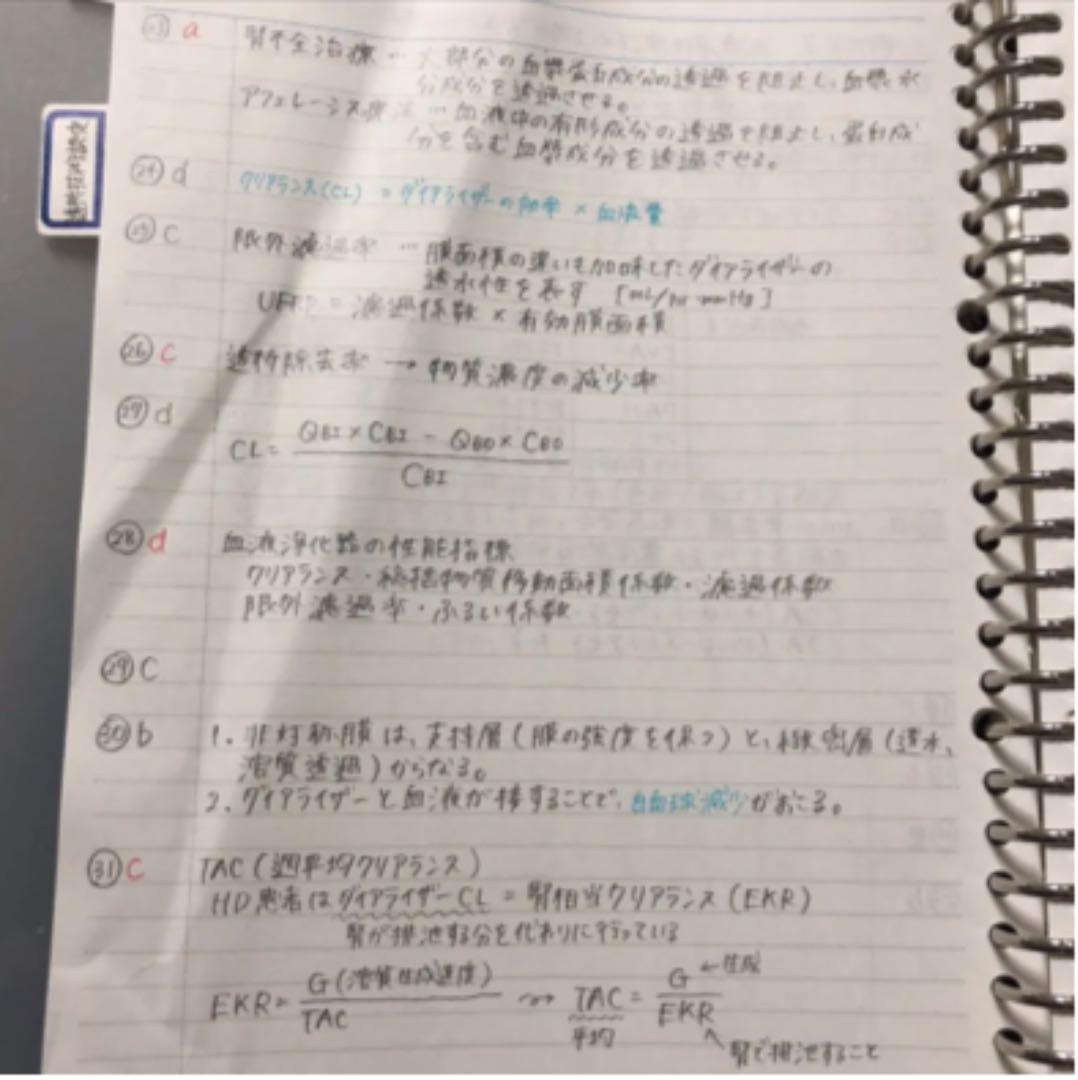 ㉓ a 腎不全治療 … 大部分の血漿蛋白成分の透過を阻止し、血漿水
分成分を透過させる。
アフェレーシス療法 … 血液中の有形成分の透過を阻止し、蛋白成
分を含む血漿成分を透過させる。
㉔ d クリアランス(CL) = ダイアライザーの効率 × 血流量
㉕ C 限外濾過率 … 膜面積の違いも加味したダイアライザーの
透水性を表す [mL/hr・mmHg]
UFRP = 濾過係数 × 有効膜面積
㉖ C 透析除去率 → 物質濃度の減少率
㉗ d
CL = (QBI × CBI − QBO × CBO) / CBI
㉘ d 血液浄化器の性能指標
クリアランス・総括物質移動面積係数・濾過係数
限外濾過率・ふるい係数
㉙ C
㉚ b 1. 非対称膜は、支持層(膜の強度を保つ)と、緻密層(透水、
溶質透過)からなる。
2. ダイアライザーと血液が接することで、白血球減少がおこる。
㉛ C TAC(週平均クリアランス)
HD患者はダイアライザーCL = 腎相当クリアランス(EKR)
腎が排泄する分を代わりに行っている
EKR = G(溶質生成速度) / TAC 〜→ TAC = G / EKR ←生成
平均
腎で排泄すること